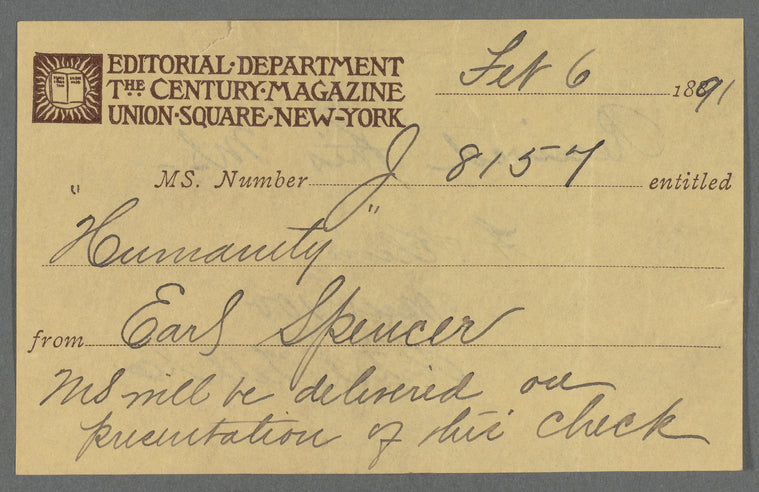 EDITORIAL·DEPARTMENT Feb 6
THE CENTURY·MAGAZINE 1891
UNION·SQUARE·NEW-YORK
MS. Number J 8157 entitled
"Humanity"
from Earl Spencer
MS will be delivered on
presentation of this check